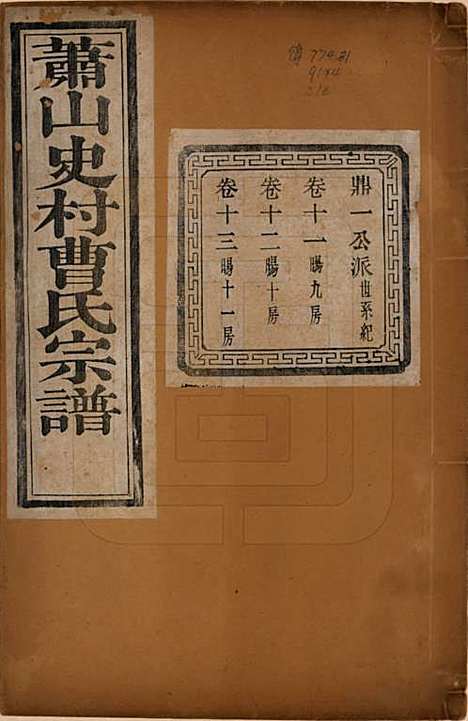 蕭山史村曹氏宗譜
鼎一公派世系紀
卷十一暘九房
卷十二暘十房
卷十三暘十一房